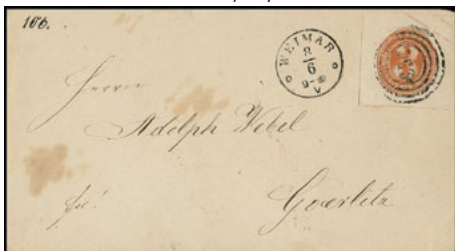 166.
WEIMAR
8
6
V
3
Herrn
Adolph Webel
Goerlitz